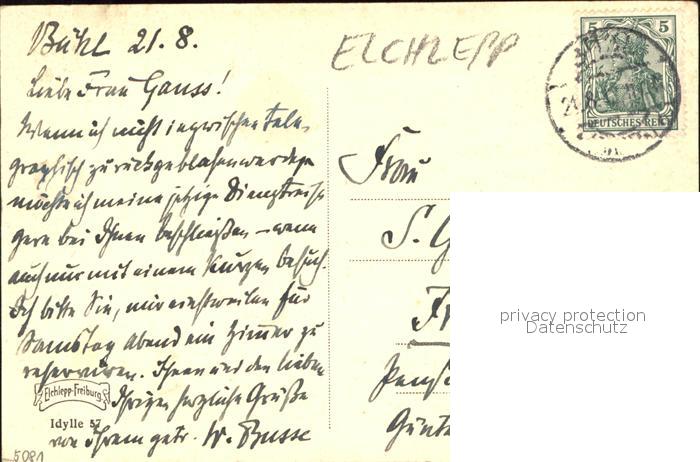 Bühl 21.8.
ELCHLEPP
5 5
DEUTSCHES REICH
Liebe Frau Gauss!
Wenn ich nicht inzwischen tele-
graphisch zurückgeblasen werde,
möchte ich meine jetzige Dienstreise
gern bei Ihnen beschließen – wenn
auch nur mit einem kurzen Besuch.
Ich bitte Sie, mir einstweilen für
Samstag Abend ein Zimmer zu
reservieren. Ihnen und den lieben
Ihrigen herzliche Grüße
von Ihrem getr. W. Busse
Elchlepp-Freiburg
Idylle 57
5081
Frau
S. G
Fr
Pens
Günt
privacy protection
Datenschutz